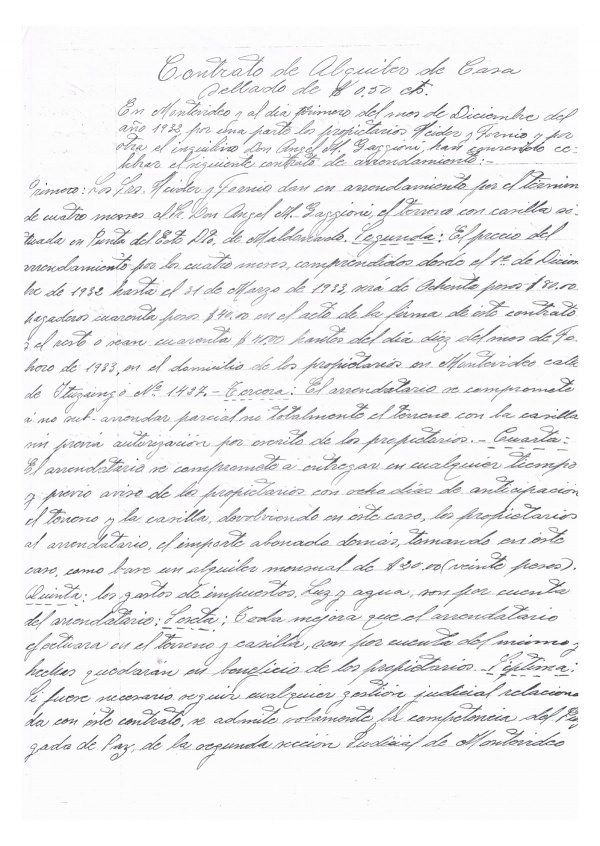 Contrato de Alquiler de Casa
Sellado de $ 0,50 cts.
En Montevideo y al dia primero del mes de Diciembre del
año 1932 por una parte los propietarios Meider y Fornio y por
otra el inquilino Don Angel M. Gaggioni, han convenido ce-
lebrar el siguiente contrato de arrendamiento:-
Primero: Los Sres. Meider y Fornio dan en arrendamiento por el términ
de cuatro meses al Sr. Don Angel M. Gaggioni, el terreno con casilla si-
tuada en Punta del Este Dto. de Maldonado. Segunda: El precio del
arrendamiento por los cuatro meses, comprendidos desde el 1º de Diciem
bre de 1932 hasta el 31 de Marzo de 1933, será de Ochenta pesos $ 80.00
pagaderos cuarenta pesos $ 40.00 en el acto de la firma de este contrato
y el resto o sean cuarenta $ 40.00 hantes del dia diez del mes de Fe-
brero de 1933, en el domicilio de los propietarios en Montevideo calle
de Ituzaingó Nº 1437.- Tercera: El arrendatario se compromete
á no sub-arrendar parcial ni totalmente el terreno con la casilla
sin previa autorización por escrito de los propietarios.- Cuarta:
El arrendatario se compromete a entregar en cualquier tiempo
y previo aviso de los propietarios con ocho dias de anticipacion
el terreno y la casilla, devolviendo en este caso, los propietarios
al arrendatario, el importe abonado demás, tomando en este
caso, como base un alquiler mensual de $ 20.00 (veinte pesos).
Quinta: los gastos de impuestos, Luz y agua, son por cuenta
del arrendatario: Sesta: Toda mejora que el arrendatario
efectuara en el terreno y casilla, son por cuenta del mismo y
hechas quedaran en beneficio de los propietarios. Septima:
Si fuese necesario seguir cualquier gestión judicial relaciona
da con este contrato, se admite solamente la competencia del Juz
gada de Paz, de la segunda sección Judicial de Montevideo